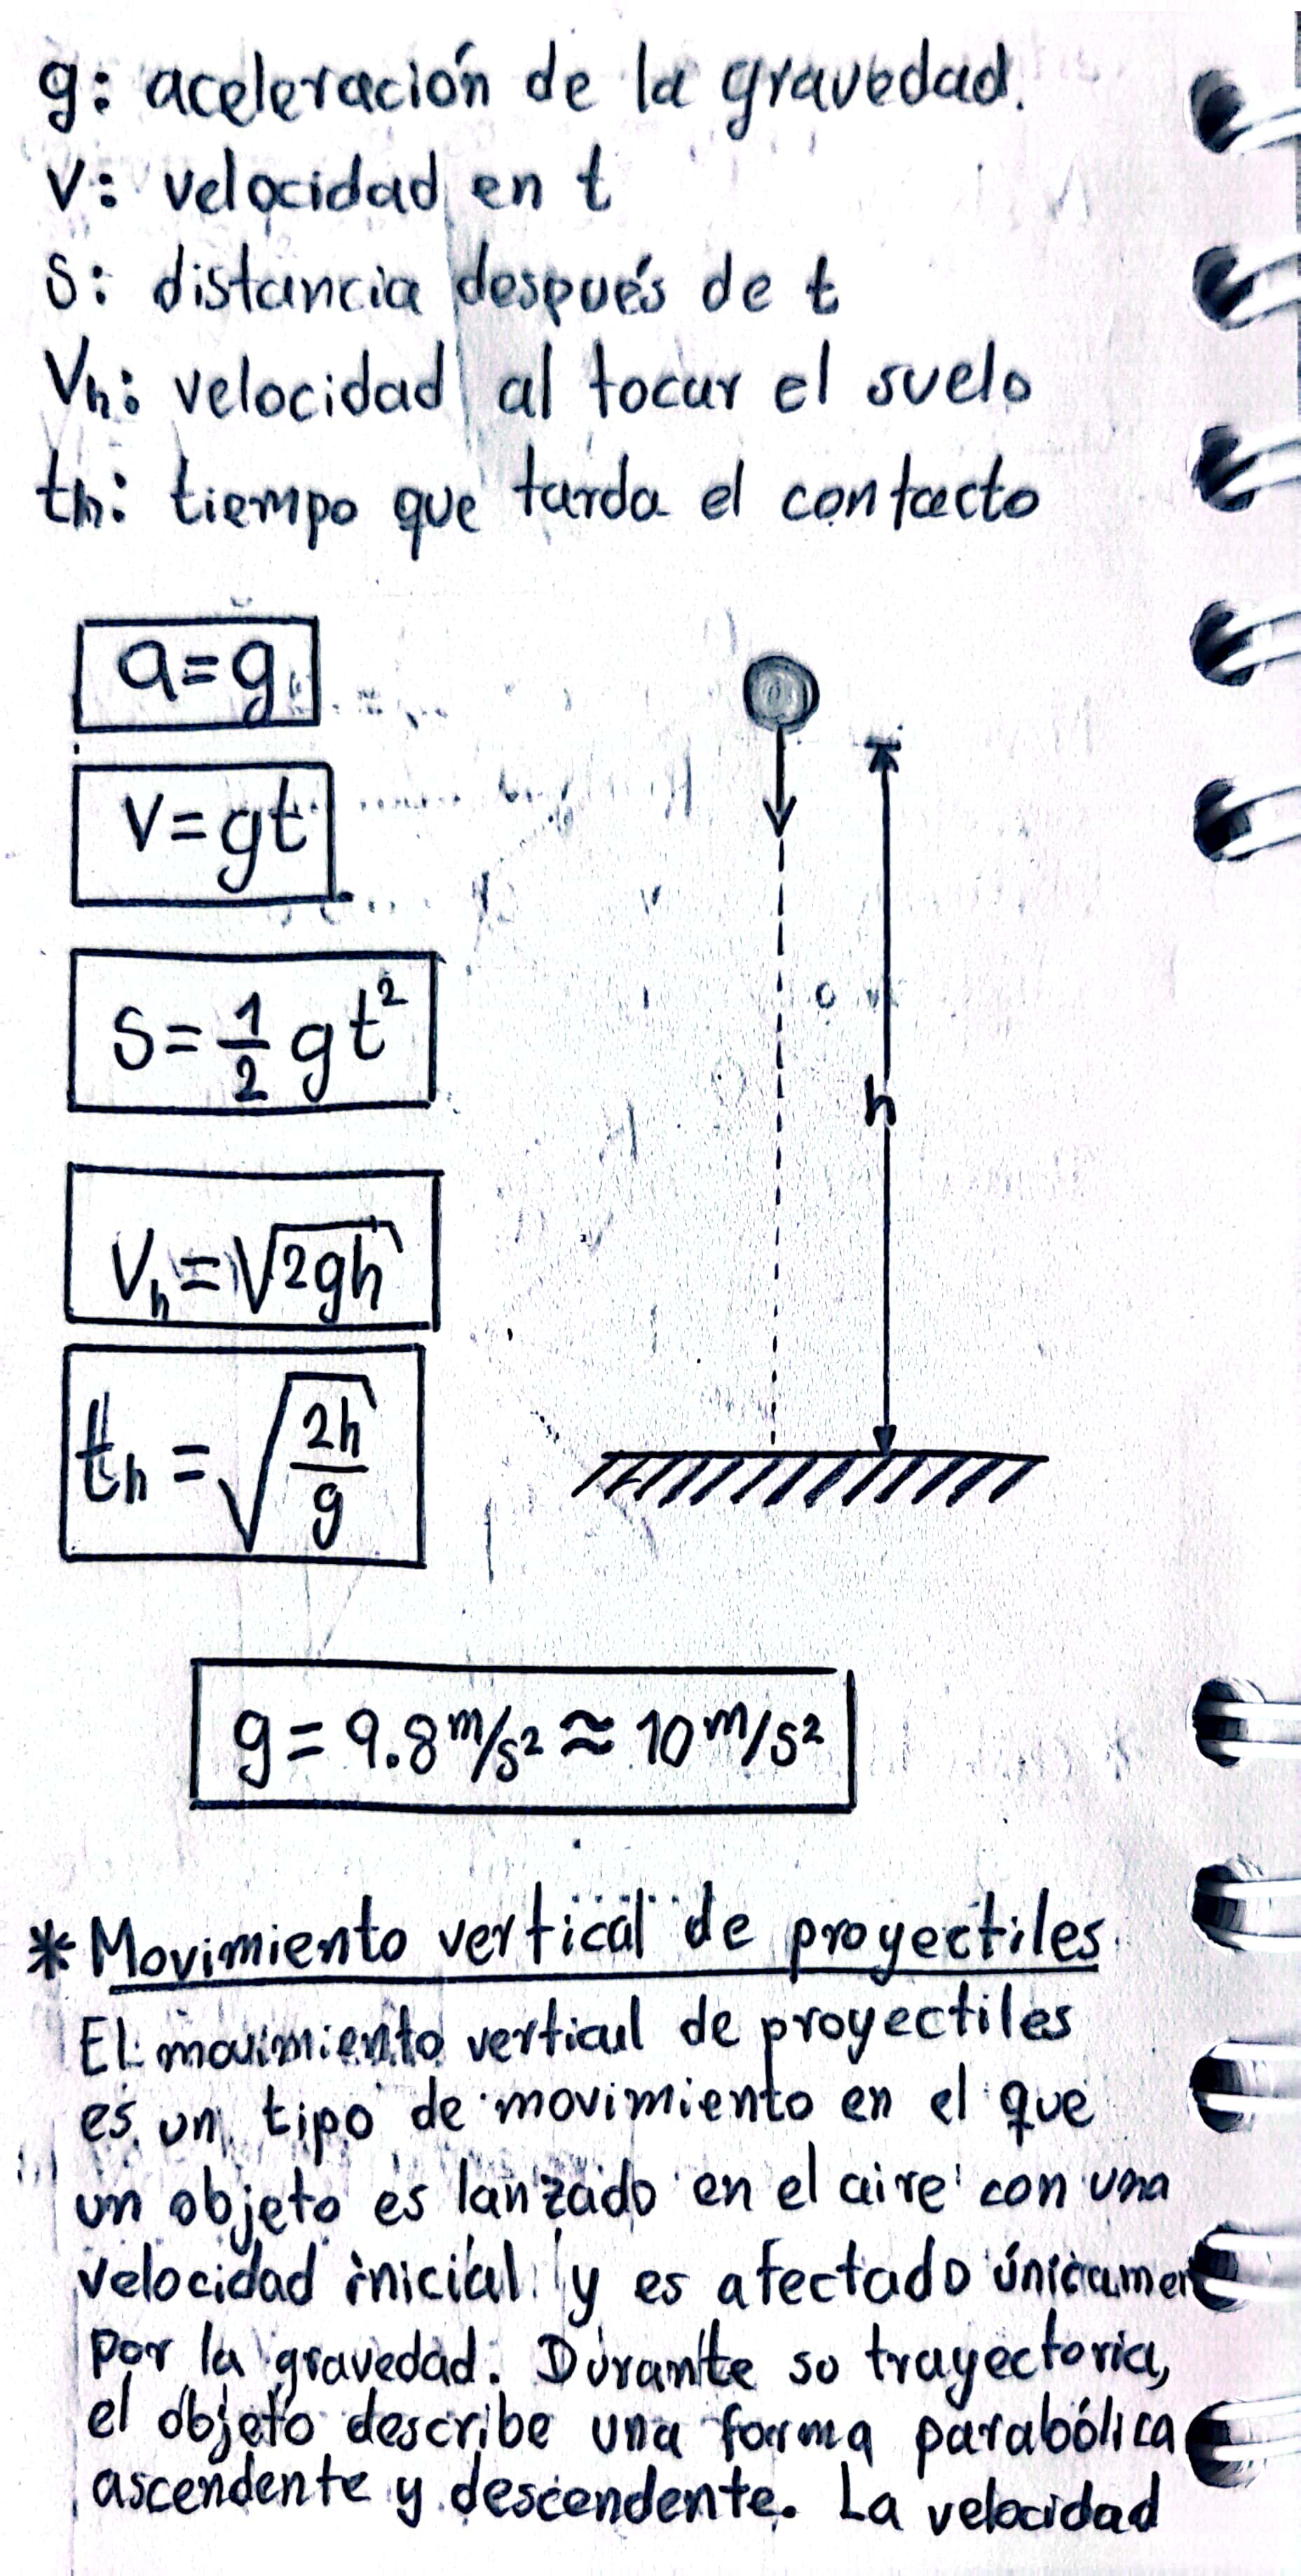 g: aceleración de la gravedad.
V: velocidad en t
S: distancia después de t
Vₕ: velocidad al tocar el suelo
tₕ: tiempo que tarda el contacto
a=g
V=gt
S=1/2 gt²
Vₕ=√2gh
tₕ=√2h/g
h
g=9.8 m/s² ≈ 10 m/s²
* Movimiento vertical de proyectiles
El movimiento vertical de proyectiles
es un tipo de movimiento en el que
un objeto es lanzado en el aire con una
velocidad inicial y es afectado únicamen
por la gravedad. Durante su trayectoria,
el objeto describe una forma parabólica
ascendente y descendente. La velocidad